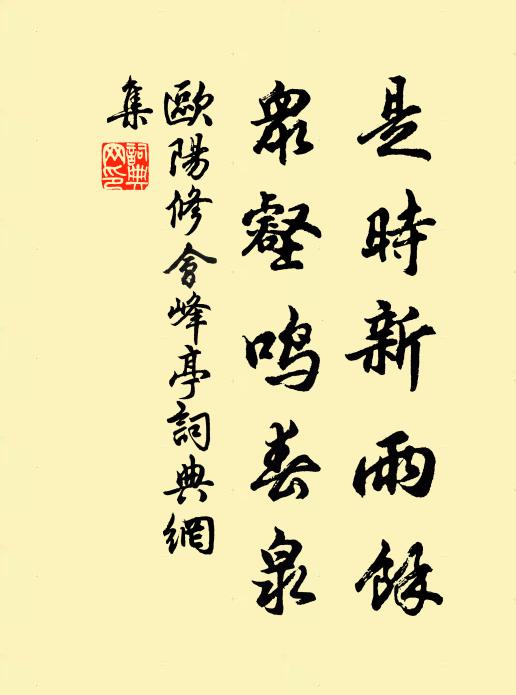 是時新雨餘
衆壑鳴春泉
歐陽修會峰亭詞典網
集
詞典網印